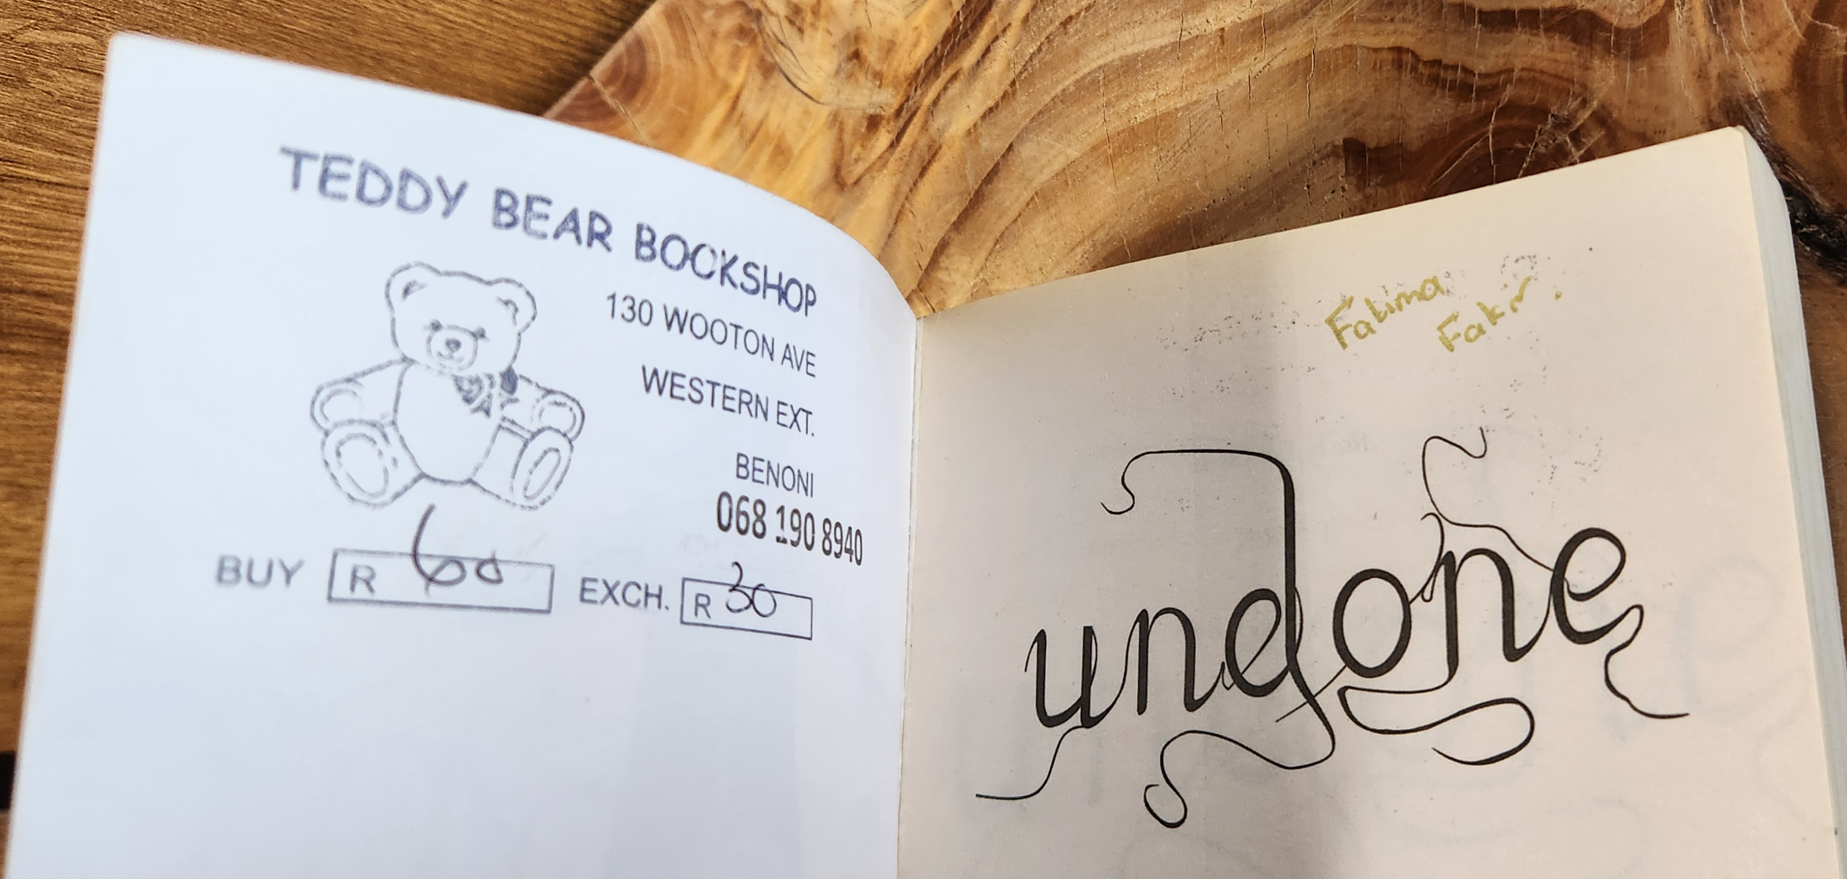 TEDDY BEAR BOOKSHOP
130 WOOTON AVE
WESTERN EXT.
BENONI
068 190 8940
BUY R 60 EXCH. R 30
Fatima
Fakir.
undone